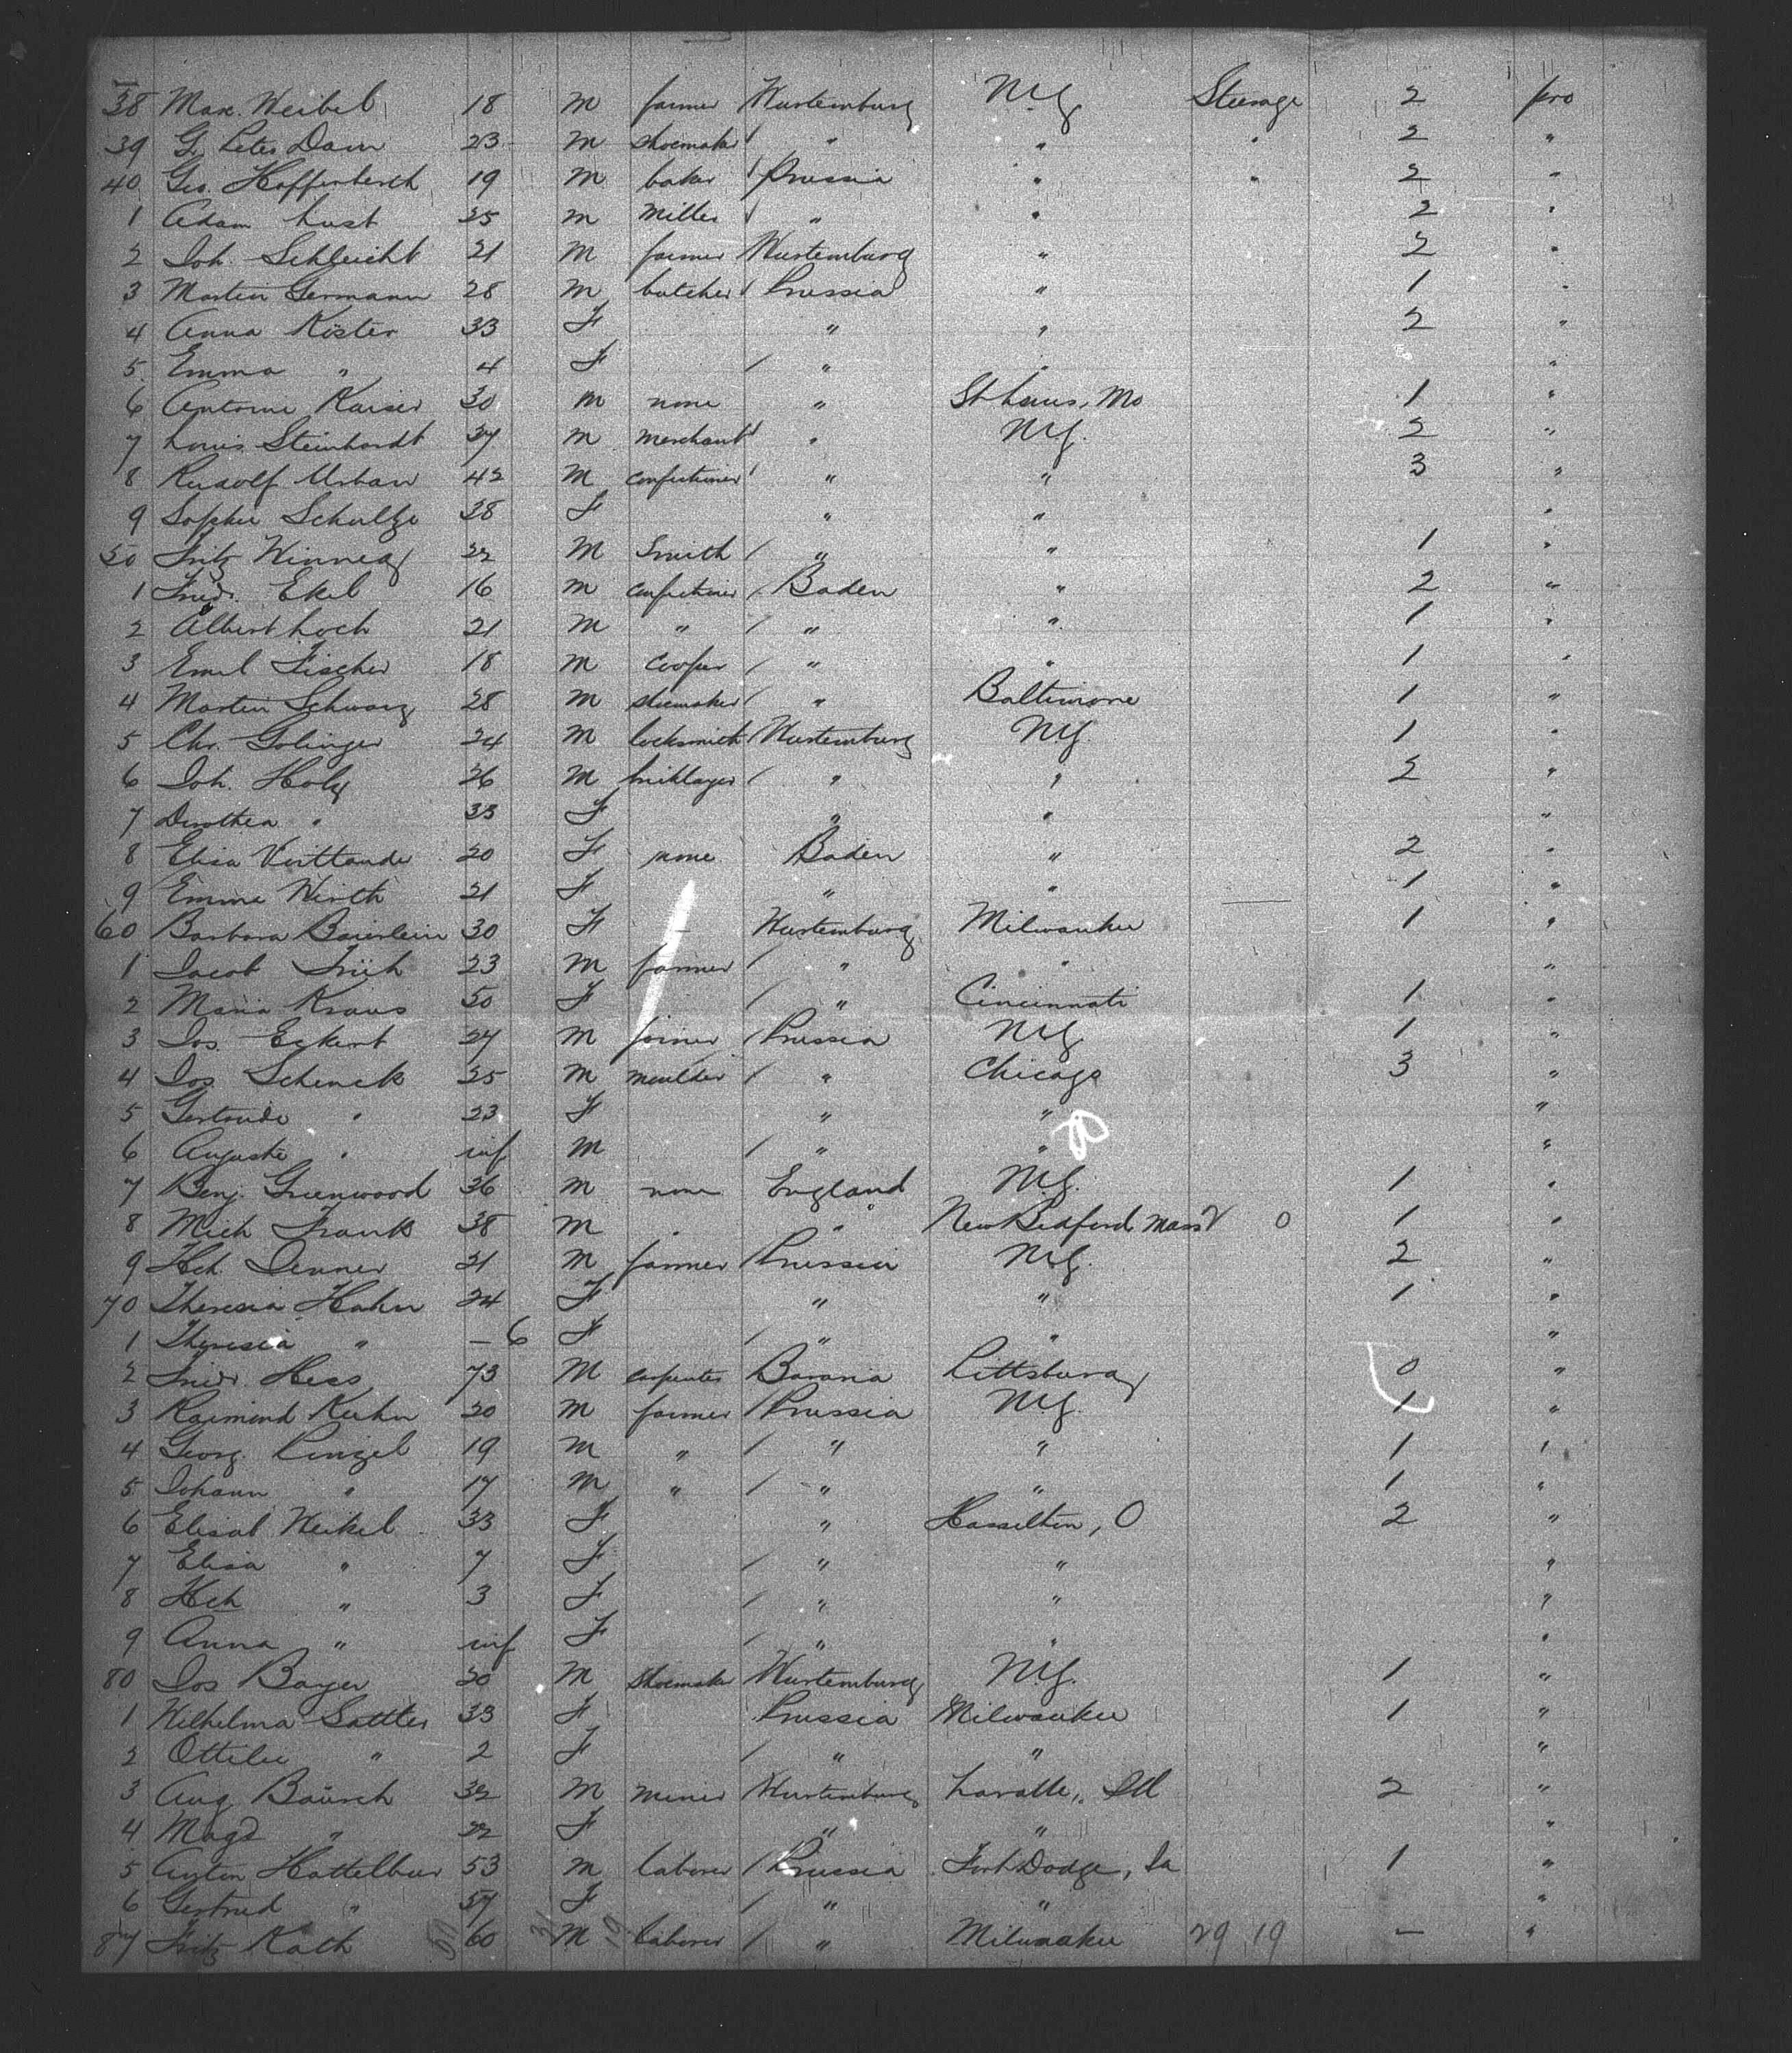 38 Max. Weibel 18 M farmer Wurtemburg N.Y. Steerage 2 pro
39 G. Peter Dam 23 M shoemaker " " " 2 "
40 Geo. Hofferberth 19 M baker Prussia " " 2 "
1 Adam Lust 25 M Miller " " 2 "
2 Joh. Schleicht 21 M farmer Wurtemburg " 2 "
3 Martin Germann 28 M butcher Prussia " 1 "
4 Anna Köster 33 F " " 2 "
5 Emma " 4 F " " "
6 Antoine Kaiser 30 M none " St Louis, Mo 1 "
7 Louis Steinhardt 37 M merchant " N.Y. 2 "
8 Rudolf Urban 42 M confectioner " " 3 "
9 Sophie Schultze 38 F " " "
50 Fritz Winneg 22 M Smith " " 1 "
1 Fried. Ekel 16 M confectioner Baden " 2 "
2 Albert Loch 21 M " " " 1 "
3 Emil Fischer 18 M cooper " " 1 "
4 Martin Schwarz 28 M shoemaker " Baltimore 1 "
5 Chr. Golinger 24 M locksmith Wurtemburg N.Y. 1 "
6 Joh. Holz 26 M briklayer " " 2 "
7 Dorothea " 33 F " " "
8 Elisa 20 F none Baden " 2 "
9 Emma Wirth 21 F " " 1 "
60 Barbara Baierlein 30 F Wurtemburg Milwaukee 1 "
1 Jacob Früh 23 M farmer " " "
2 Maria Kraus 50 F " Cincinnati 1 "
3 Jos. Eckert 27 M joiner Prussia N.Y. 1 "
4 Jos. Schenck 25 M moulder " Chicago 3 "
5 Gertrude " 23 F " " "
6 Auguste " inf M " " "
7 Benj. Greenwood 36 M none England N.Y. 1 "
8 Mich Frank 38 M " " New Bedford Mass 0 1 "
9 Hch. Denner 21 M farmer Prussia N.Y. 2 "
70 Theresia Hahn 24 F " " 1 "
1 Theresia " – 6 F " " "
2 Fried. Hess 73 M carpenter Bavaria Pittsburg 0 "
3 Raimond Kuhn 20 M farmer Prussia N.Y. 1 "
4 Georg. Pinzel 19 M " " " 1 "
5 Johann " 17 M " " " 1 "
6 Elisab Weikel 33 F " Hasselton, O 2 "
7 Elisa " 7 F " " "
8 Hch " 3 F " " "
9 Anna " inf F " " "
80 Jos Bayer 20 M shoemaker Wurtemburg N.Y. 1 "
1 Wilhelma Sattler 33 F Prussia Milwaukee 1 "
2 Ottilie " 2 F " " "
3 Aug. Baürch 32 M miner Wurtemburg Lasalle, Ill 2 "
4 Magd " 22 F " " "
5 Anton 53 M laborer Prussia Fort Dodge, Ia 1 "
6 Gertrud " 57 F " " "
87 Fritz Rath 60 M laborer " Milwaukee 29 19 – "